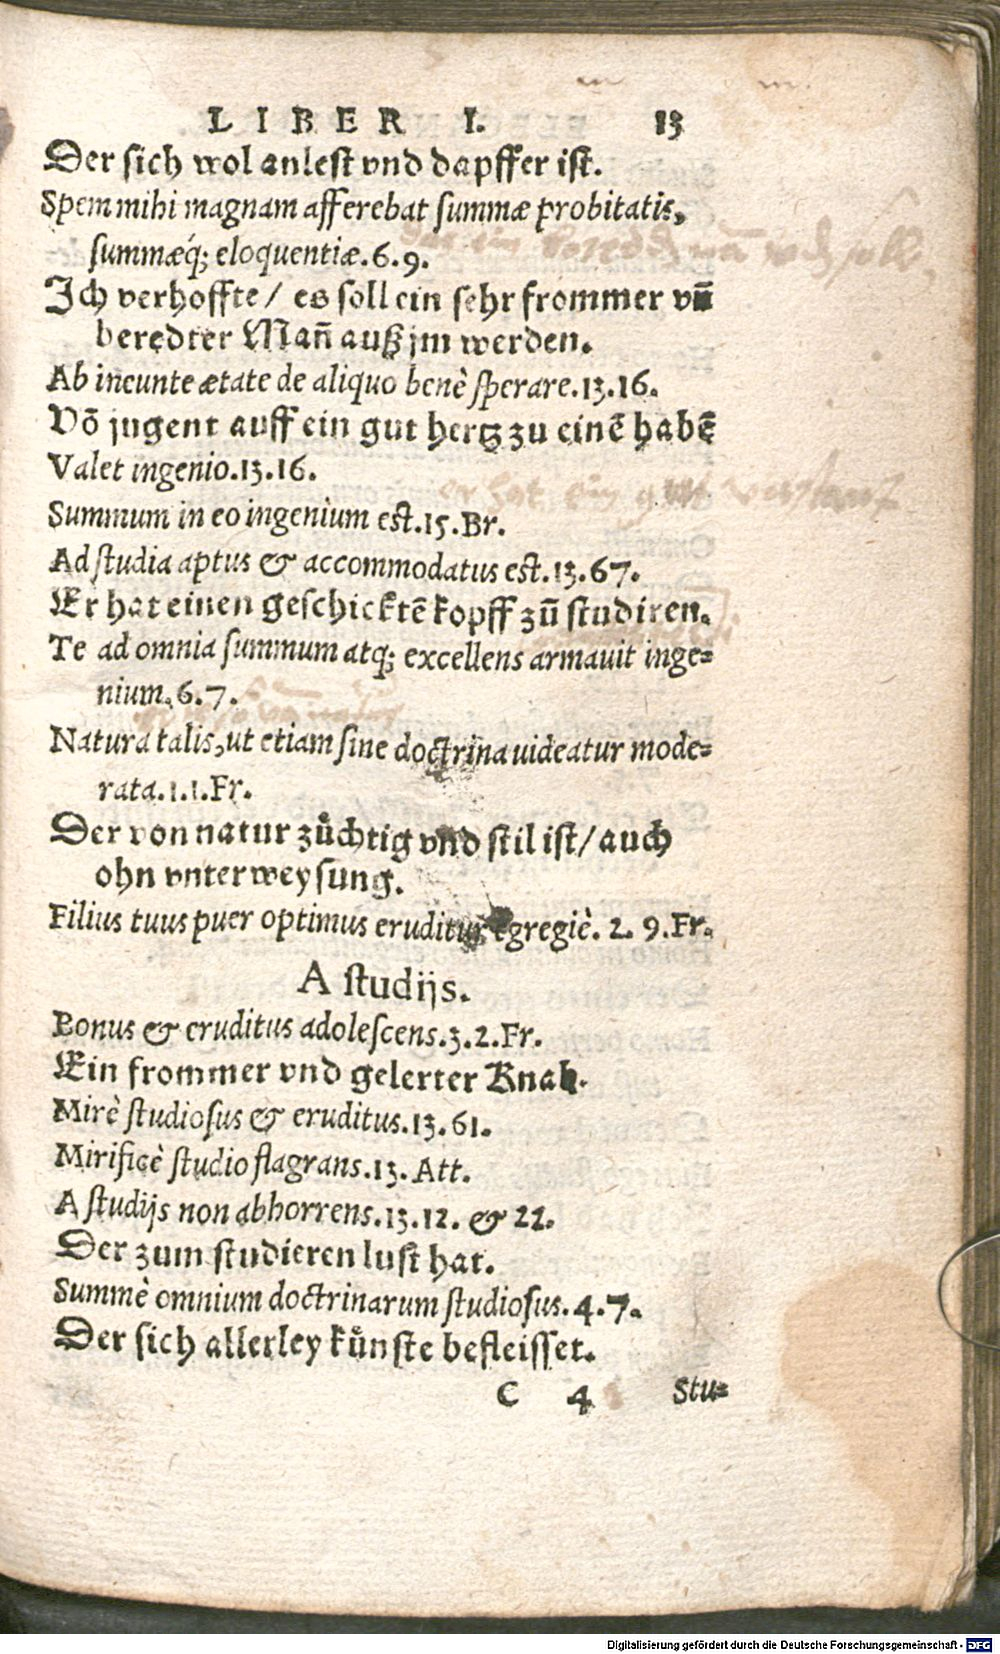 LIBER I. 13
Der sich wol anlest vnd dapffer ist.
Spem mihi magnam afferebat summæ probitatis,
summæq́; eloquentiæ. 6. 9.
Ich verhoffte / es soll ein sehr frommer vñ
beredter Mañ auß jm werden.
Ab ineunte ætate de aliquo benè sperare. 13. 16.
Võ jugent auff ein gut hertz zu einẽ habẽ
Valet ingenio. 13. 16.
er hat ein gutt
Summum in eo ingenium est. 15. Br.
Ad studia aptus & accommodatus est. 13. 67.
Er hat einen geschicktẽ kopff zū studiren.
Te ad omnia summum atq; excellens armauit inge=
nium. 6. 7.
Natura talis, ut etiam sine doctrina uideatur mode=
rata. 1. 1. Fr.
Der von natur zůchtig vnd stil ist / auch
ohn vnterweysung.
Filius tuus puer optimus eruditur egregiè. 2. 9. Fr.
A studijs.
Bonus & eruditus adolescens. 3. 2. Fr.
Ein frommer vnd gelerter Knab.
Mirè studiosus & eruditus. 13. 61.
Mirificè studio flagrans. 13. Att.
A studijs non abhorrens. 13. 12. & 22.
Der zum studieren lust hat.
Summè omnium doctrinarum studiosus. 4. 7.
Der sich allerley kůnste befleisset.
C 4 Stu=
Digitalisierung gefördert durch die Deutsche Forschungsgemeinschaft - DFG